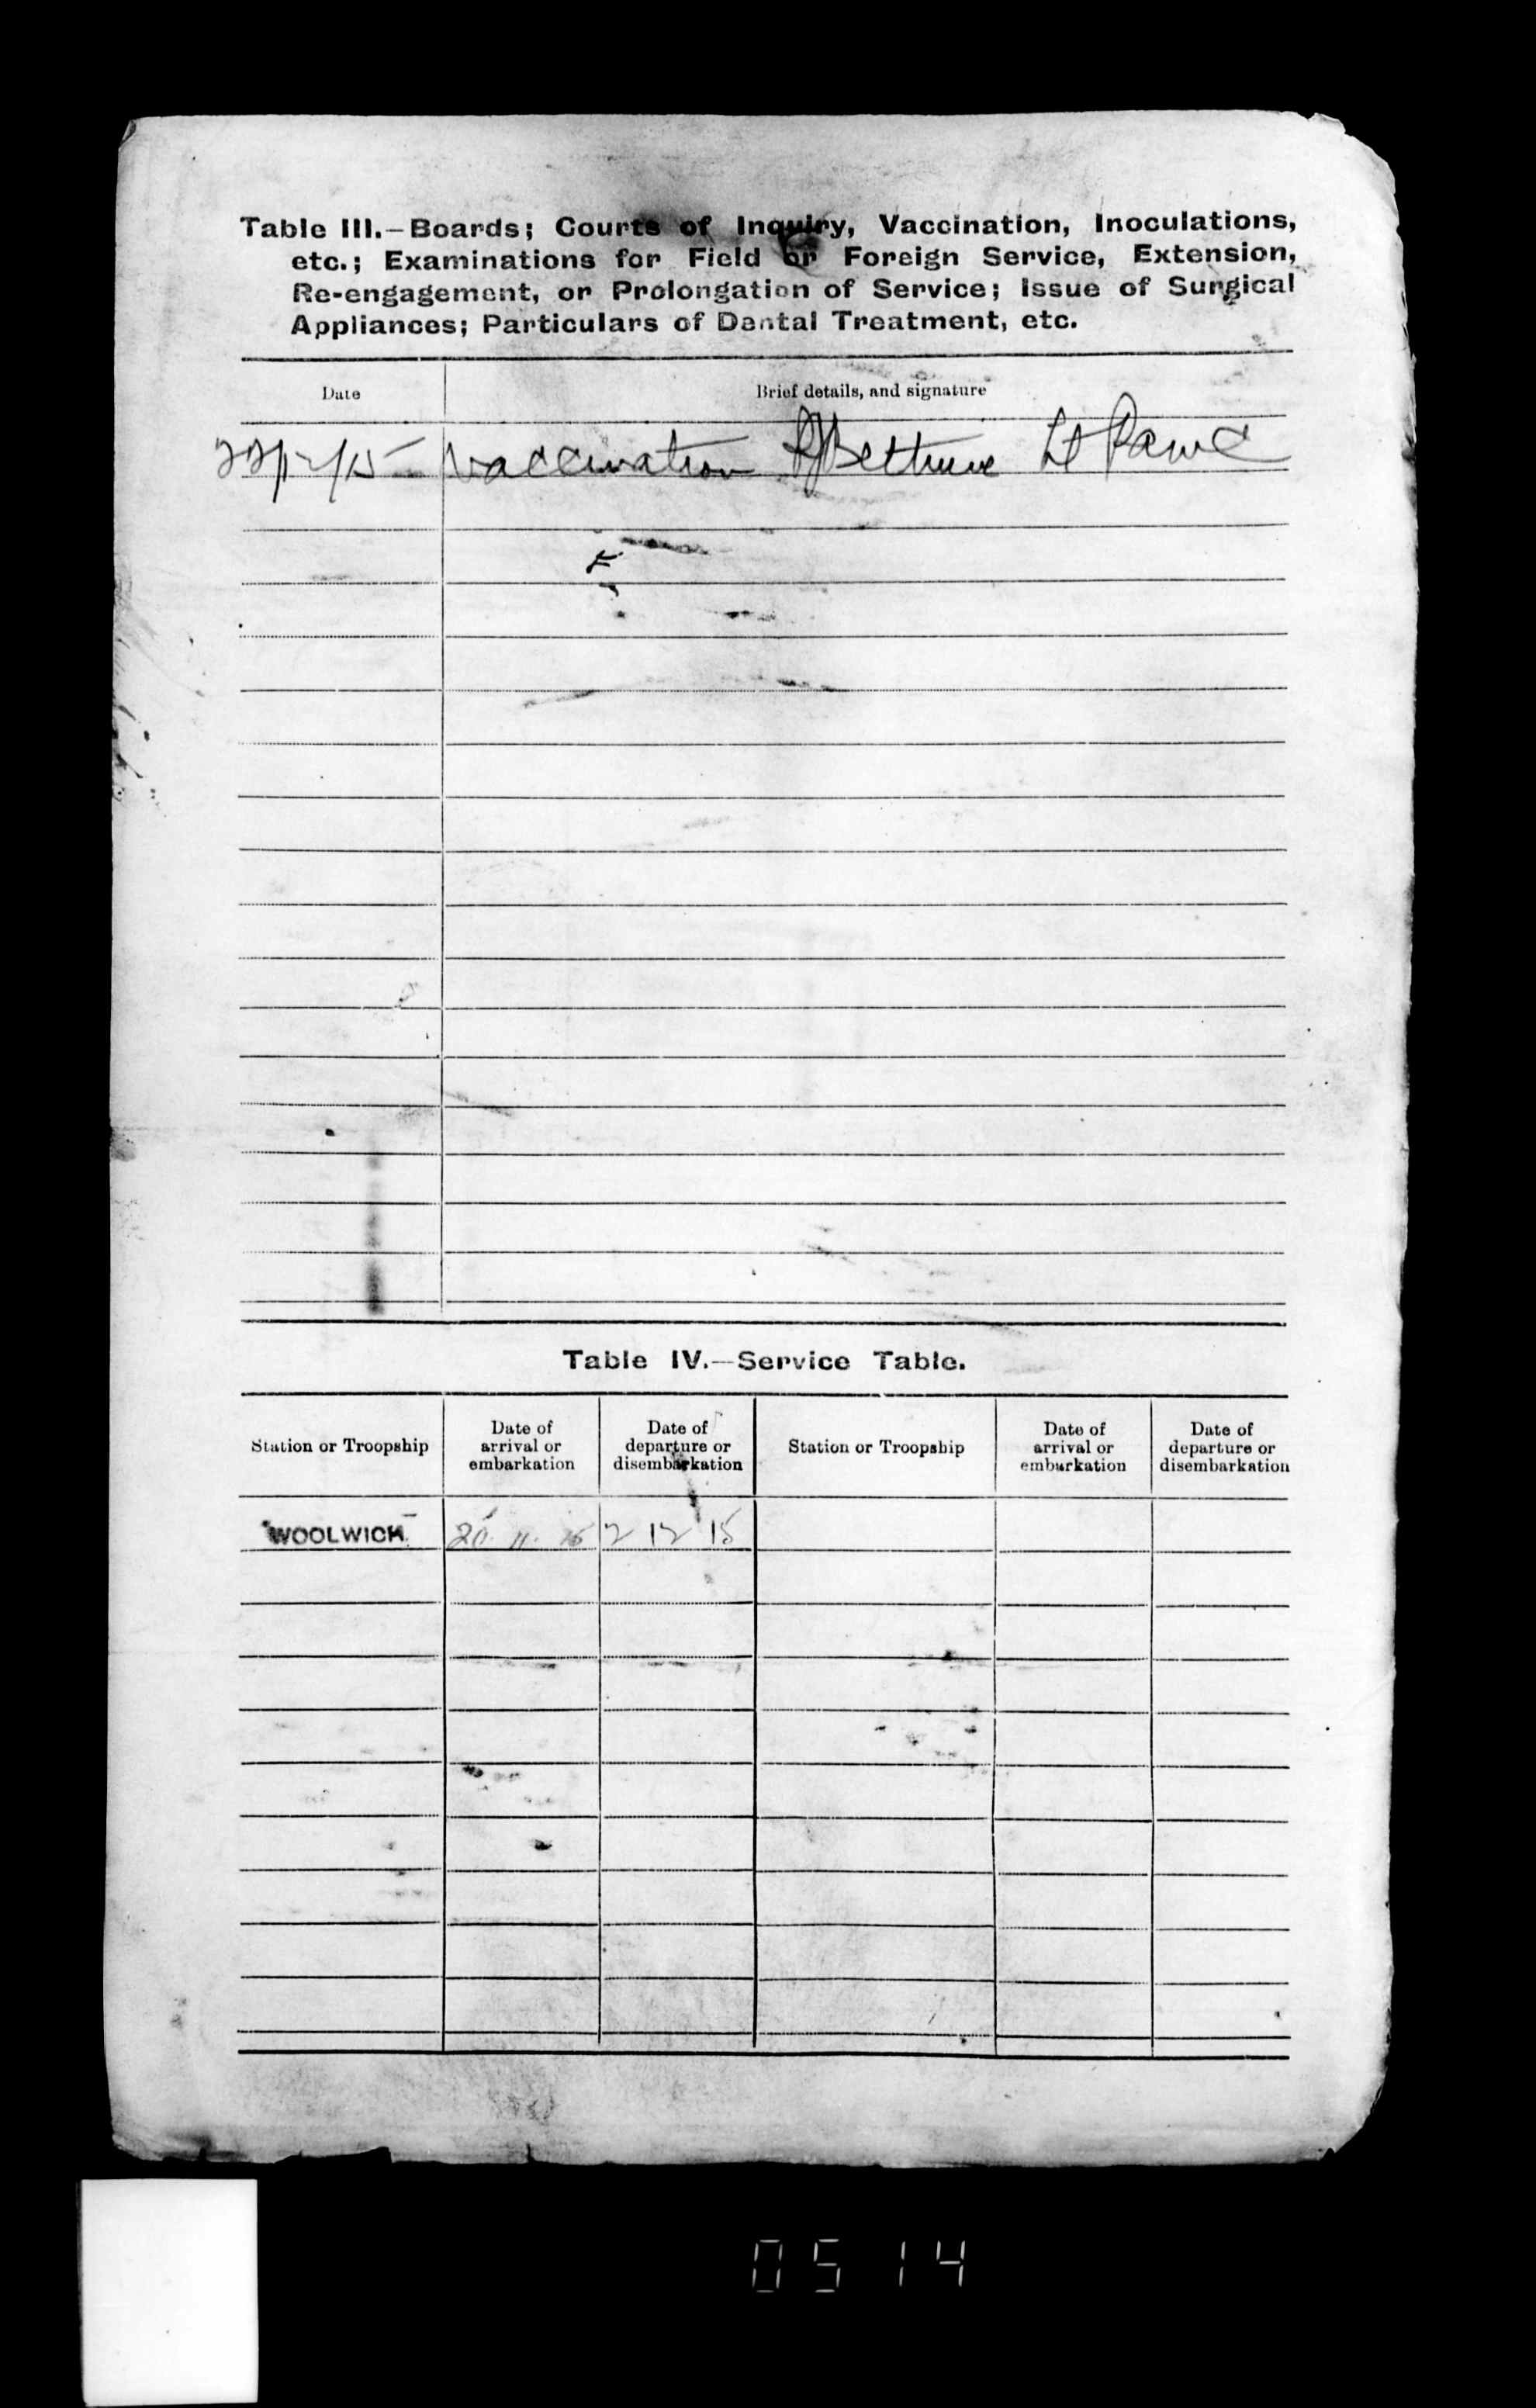 Table III.—Boards; Courts of Inquiry, Vaccination, Inoculations,
etc.; Examinations for Field or Foreign Service, Extension,
Re-engagement, or Prolongation of Service; Issue of Surgical
Appliances; Particulars of Dental Treatment, etc.
Date Brief details, and signature
22/12/15 Vaccination Bethune Lt RAMC
Table IV.—Service Table.
Station or Troopship
Date of
arrival or
embarkation
Date of
departure or
disembarkation
Station or Troopship
Date of
arrival or
embarkation
Date of
departure or
disembarkation
WOOLWICH 11 15 2 12 15
0514